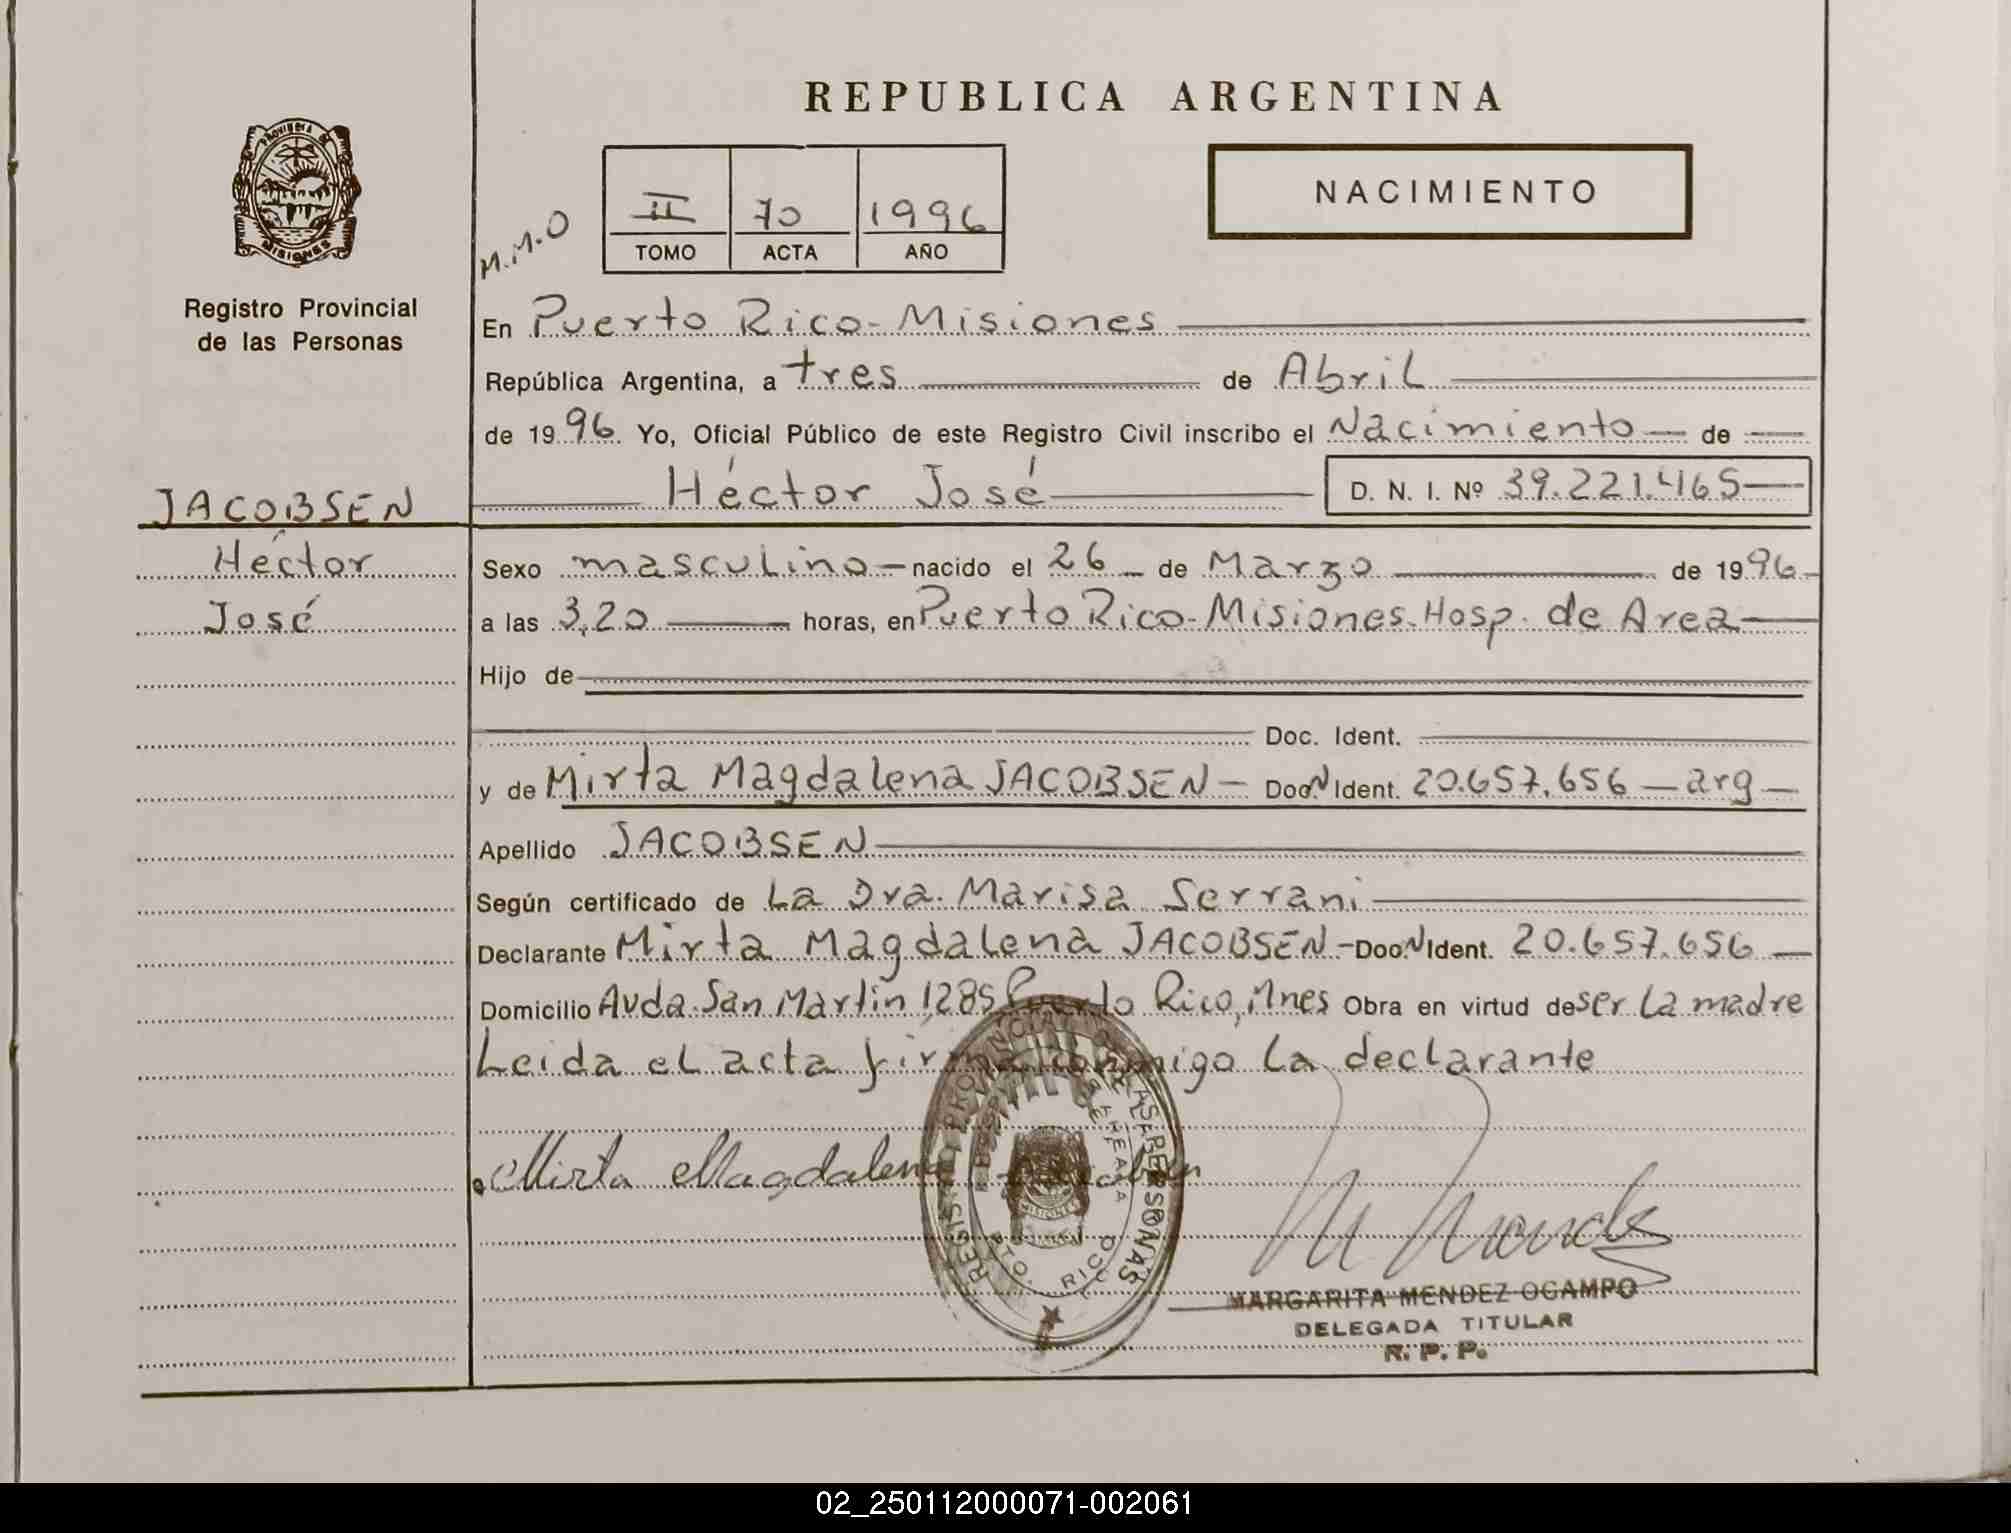 REPUBLICA ARGENTINA
PROVINCIA DE
MISIONES
Registro Provincial
de las Personas
M.M.O
II 70 1996
TOMO ACTA AÑO
NACIMIENTO
En Puerto Rico-Misiones
República Argentina, a tres de Abril
de 1996. Yo, Oficial Público de este Registro Civil inscribo el Nacimiento de
Héctor José D. N. I. Nº 39.221.465
JACOBSEN
Héctor
José
Sexo masculino nacido el 26 de Marzo de 1996
a las 3,20 horas, en Puerto Rico-Misiones-Hosp. de Area
Hijo de
Doc. Ident.
y de Mirta Magdalena JACOBSEN - Doc. N Ident. 20.657.656 - arg -
Apellido JACOBSEN
Según certificado de La Dra. Marisa Serrani
Declarante Mirta Magdalena JACOBSEN - Doc. N Ident. 20.657.656
Domicilio Avda. San Martin 1285 Puerto Rico, Mnes Obra en virtud de ser La madre
Leida el acta firma conmigo La declarante
Mirta Magdalena Jacobsen
REGISTRO PROVINCIAL DE LAS PERSONAS
MISIONES
PTO. RICO
MARGARITA MENDEZ OCAMPO
DELEGADA TITULAR
R. P. P.
02_250112000071-002061